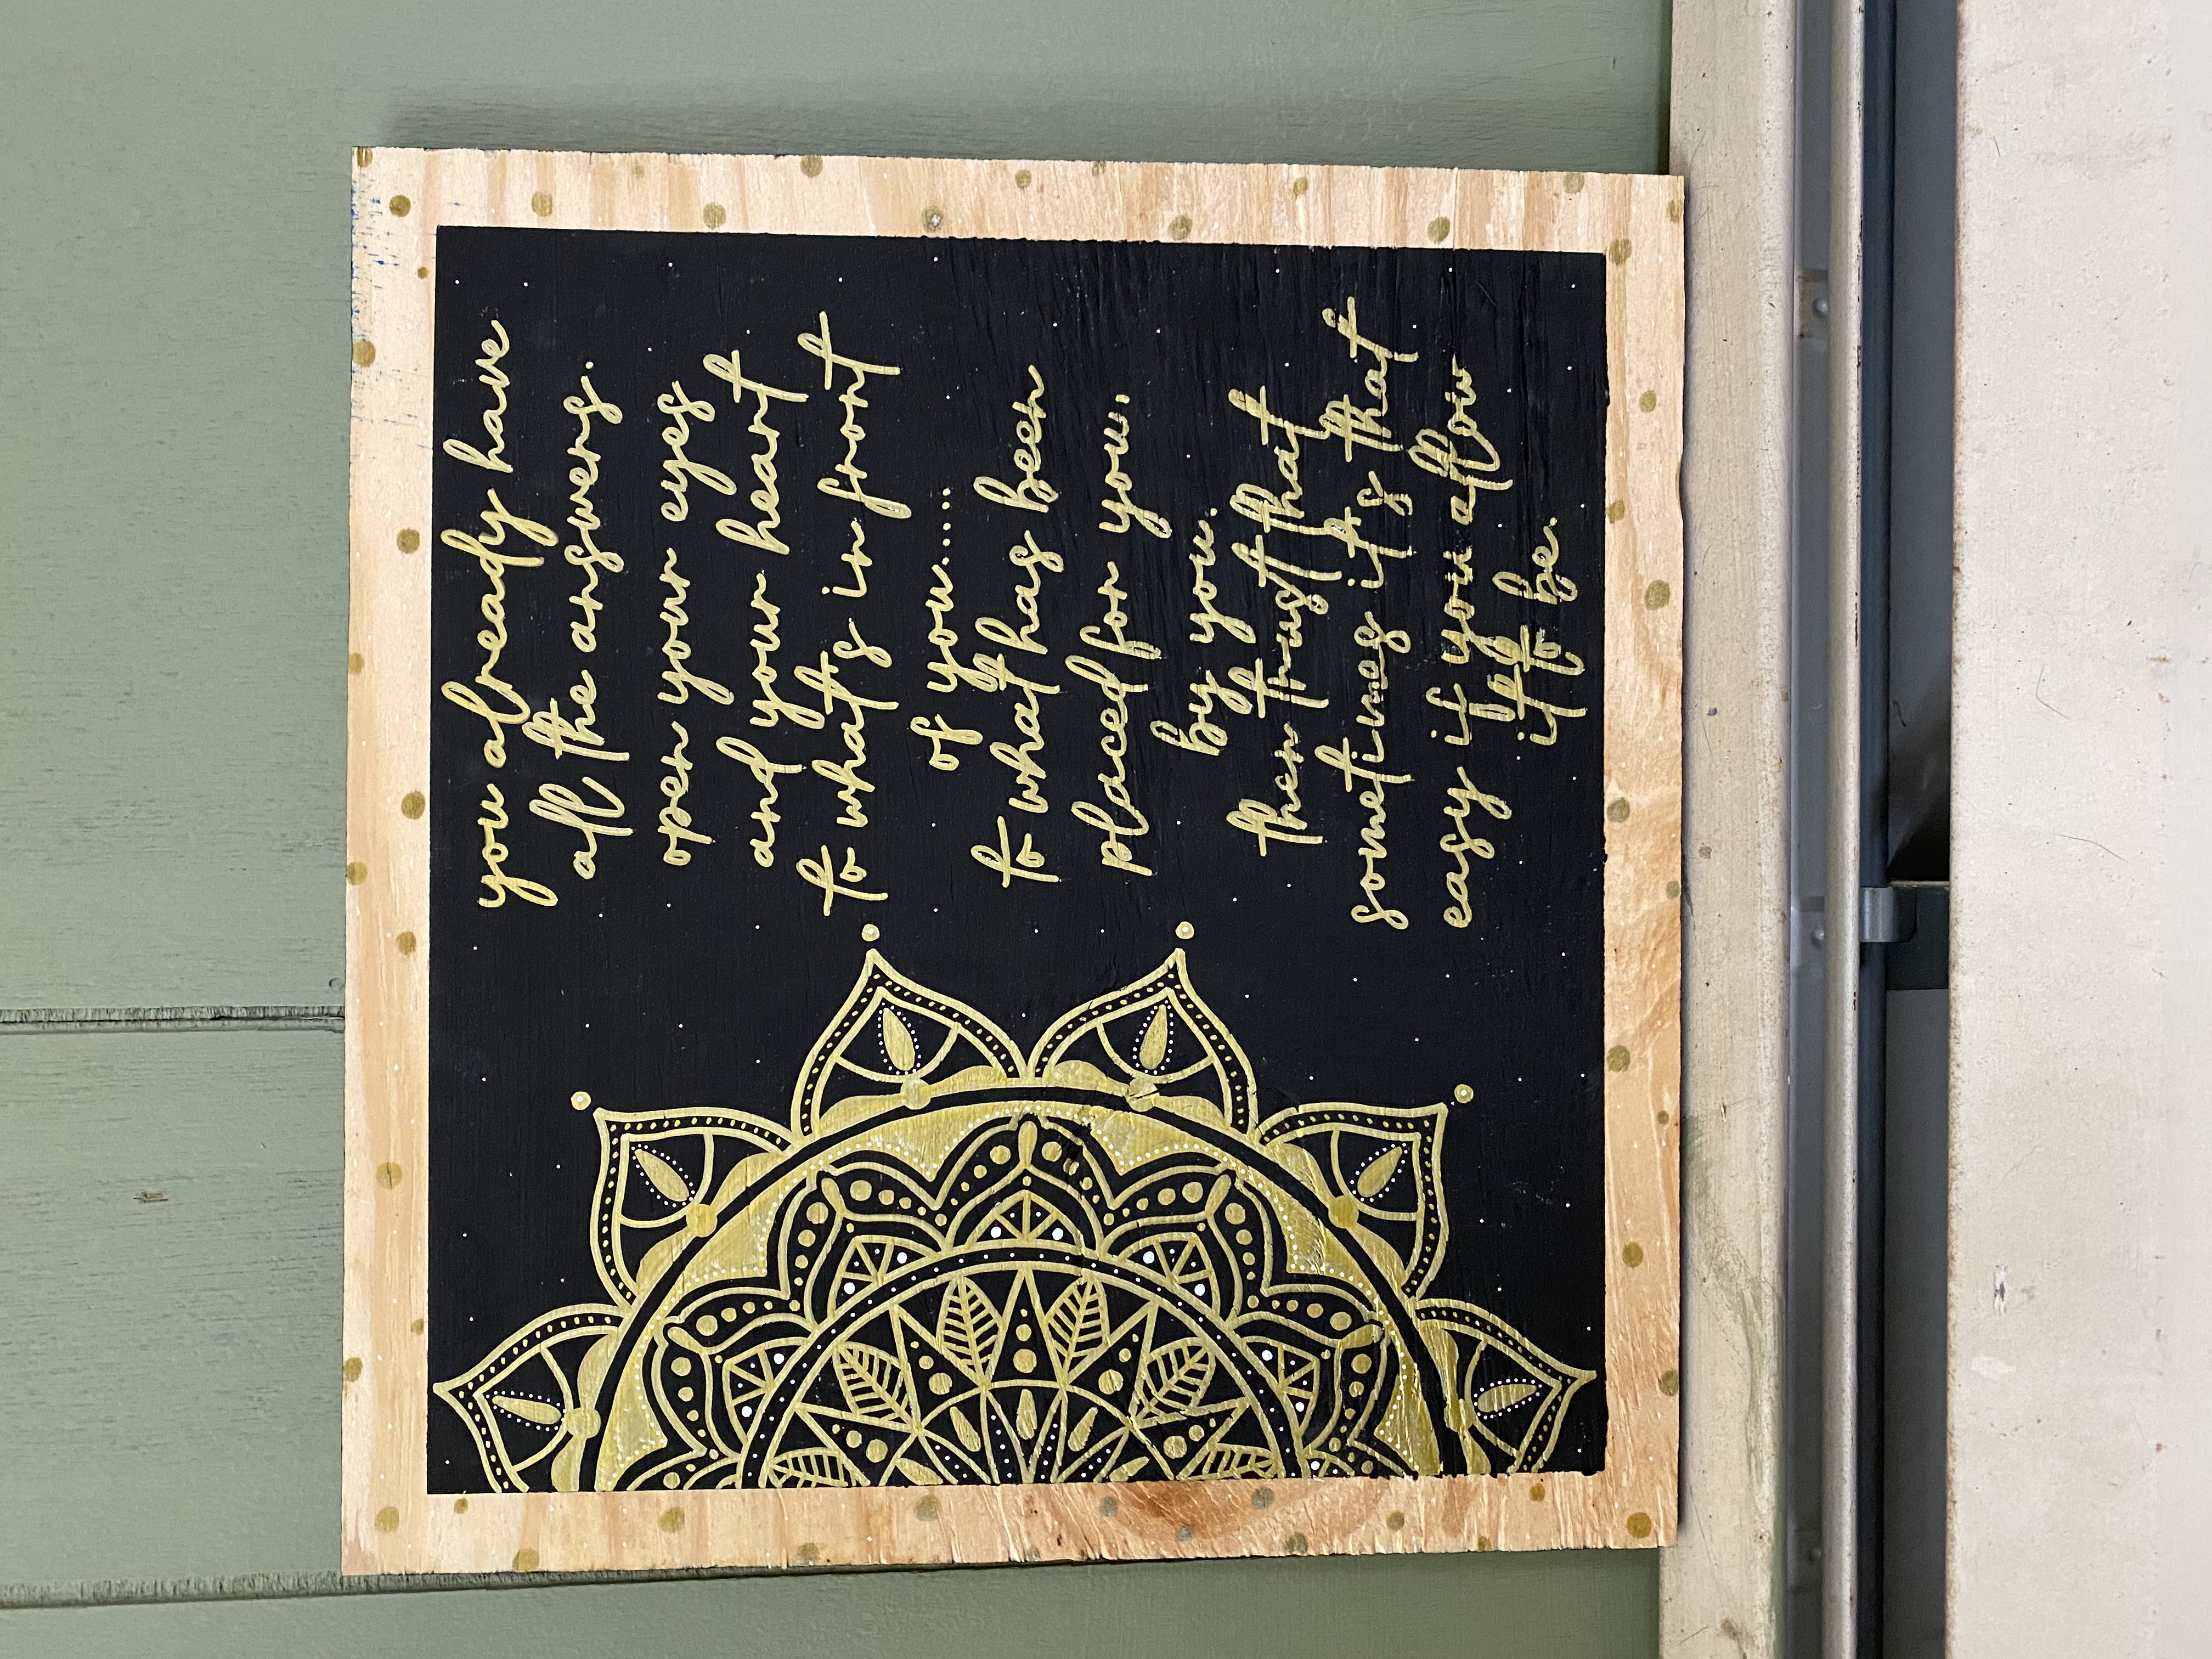 you already have
all the answers.
open your eyes
and your heart
to what's in front
of you.....
to what has been
placed for you.
by you.
then trust that
sometimes it's that
easy if you allow
it to be.